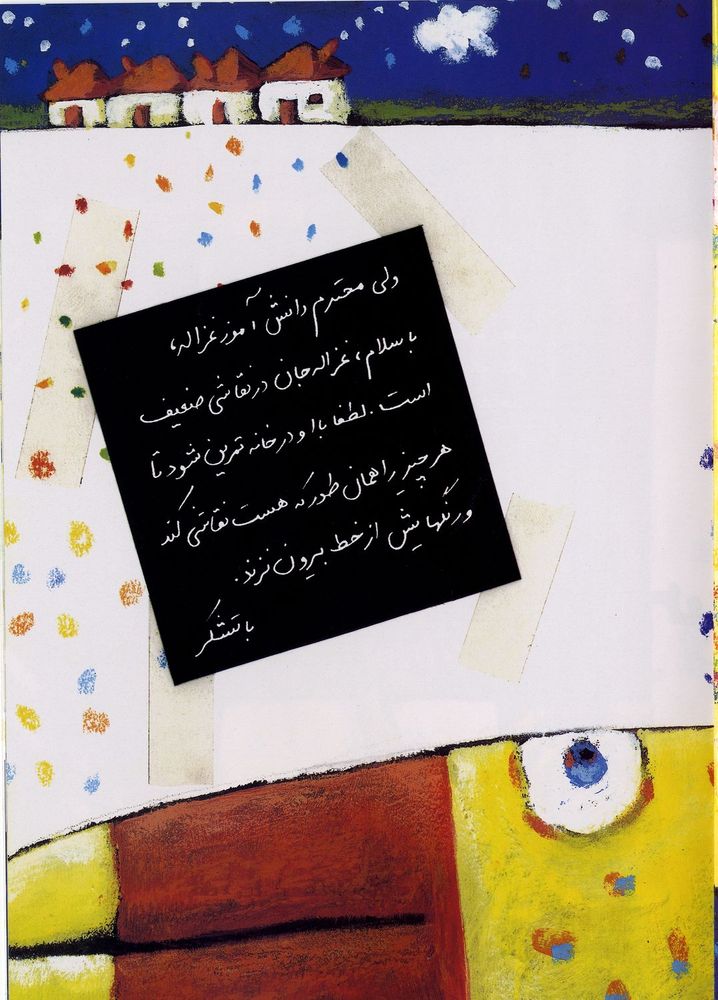 ولی محترم دانش آموز غزاله،
با سلام، غزاله جان در نقاشی ضعیف
است. لطفا با او در خانه تمرین شود تا
هر چیز را همان طور که هست نقاشی کند
و رنگهایش از خط بیرون نزند.
با تشکر